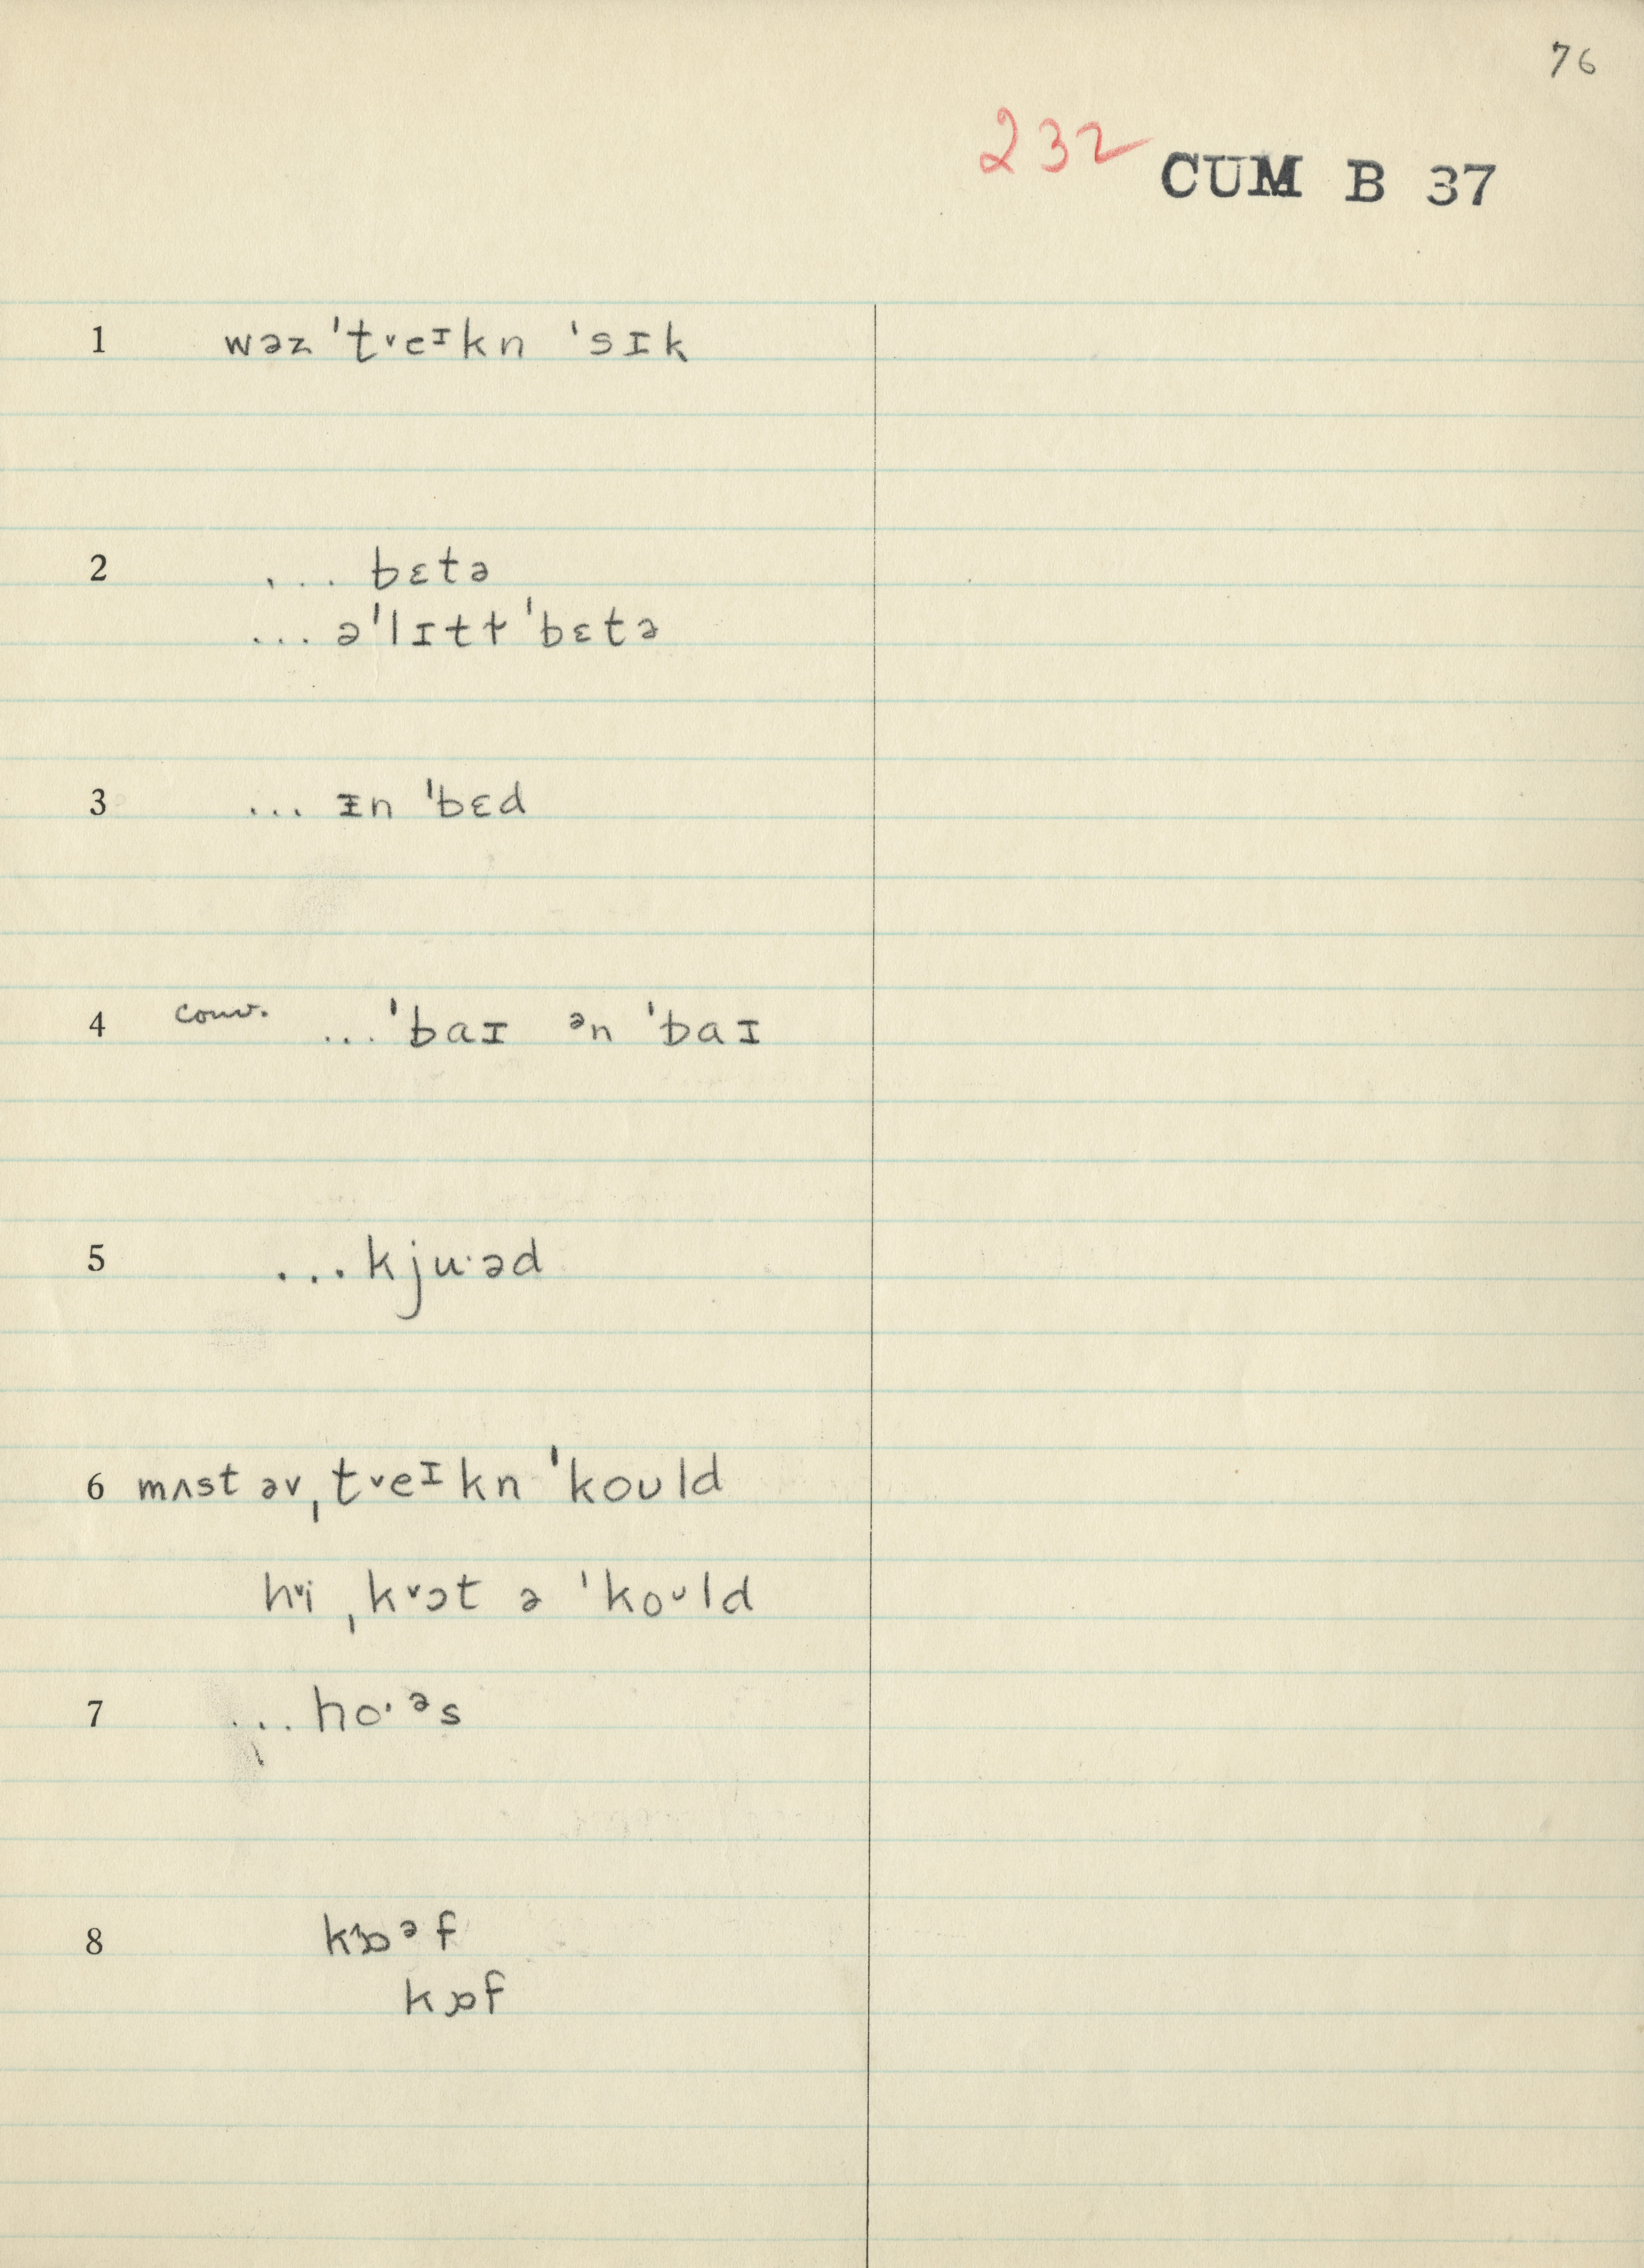 76
232 CUM B 37
1 wəz ˈtᵛeᶦkn ˈsɪk
2 ... bɛtə
... əˈlɪtɫ ˈbɛtə
3 ... ᵻn ˈbɛd
4 conv. ...ˈbaɪ ᵊn ˈbaɪ
5 ...kjuˑəd
6 mʌst əv ˌtᵛeᶦkn ˈkoʊld
hᵛi ˌkᵛɔt ə ˈkoᶷld
7 ...hoˑᵊs
8